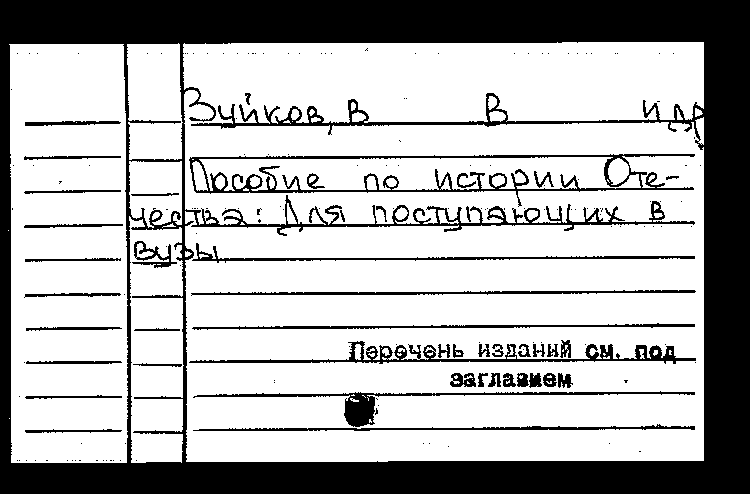 Зуйков, В В и др
Пособие по истории Оте-
чества: Для поступающих в
вузы
Перечень изданий см. под
заглавием